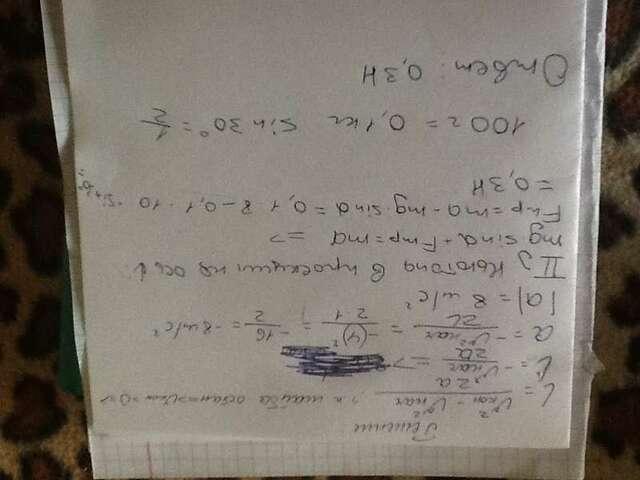 Решение
l = V²кон - V²нач / 2a , т.к шайба остан => Vкон = 0
l = -V²нач / 2a =>
a = -V²нач / 2l = -(4)² / 2·1 = -16 / 2 = -8 м/с²
|a| = 8 м/с²
II з Ньютона в проекции на ось ↓
mg sinα + Fтр = ma =>
Fтр = ma - mg·sinα = 0,1·8 - 0,1·10·sin30° =
= 0,3Н
100г = 0,1кг sin30° = 1/2
Ответ: 0,3Н